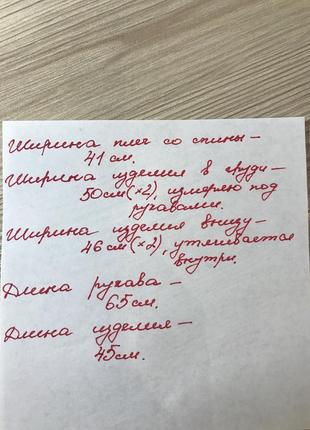 Ширина плеч со спины –
41 см.
Ширина изделия в груди –
50 см (×2), измеряю под
рукавами.
Ширина изделия внизу –
46 см (×2), утягивается
внутри.
Длина рукава –
65 см.
Длина изделия –
45 см.